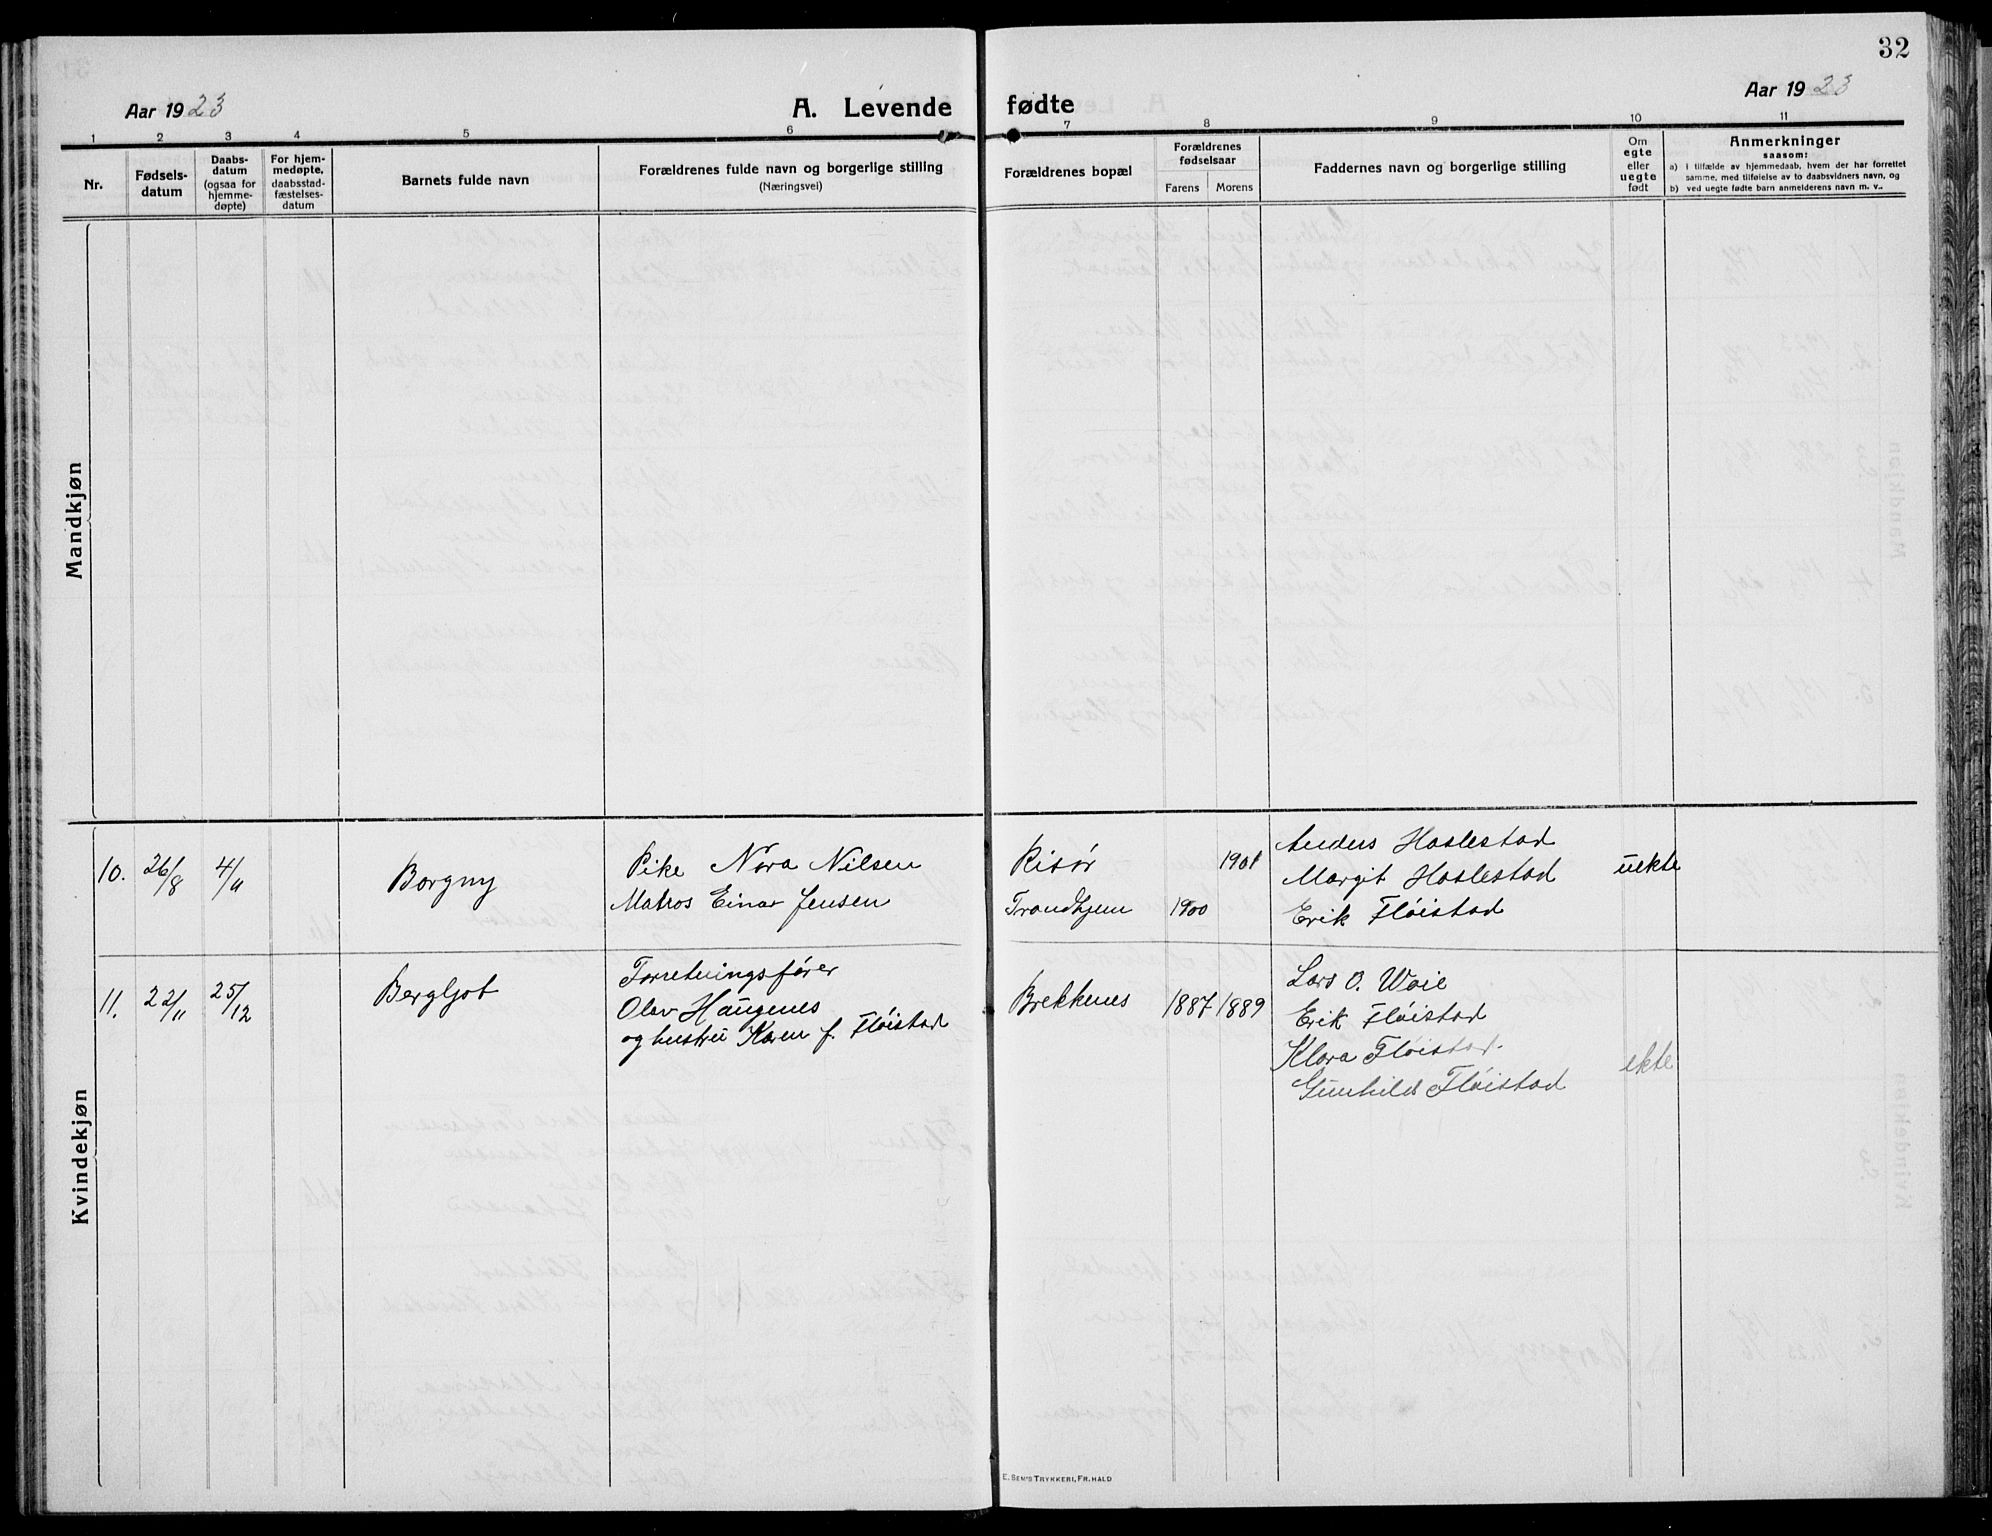 32
Aar 1923
A. Levende fødte
Aar 1923
1 2 3 4 5 6 7 8 9 10 11
Nr.
Fødsels-
datum
Daabs-
datum
(ogsaa for
hjemme-
døpte)
For hjem-
medøpte,
daabsstad-
fæstelses-
datum
Barnets fulde navn
Forældrenes fulde navn og borgerlige stilling
(Næringsvei)
Forældrenes bopæl
Forældrenes
fødselsaar
Farens
Morens
Faddernes navn og borgerlige stilling
Om
egte
eller
uegte
født
Anmerkninger
saasom:
a) i tilfælde av hjemmedaab, hvem der har forrettet
samme, med tilføielse av to daabsvidners navn, og
b) ved uegte fødte barn anmelderens navn m. v..
Mandkjøn
Kvindekjøn
10. 26/8 4/11 Borgny
Pike Nora Nilsen
Matros Einar Jensen
Risör 1901
Trondhjem 1900
Anders Haslestad
Margit Haslestad
Erik Flöistad
uekte
11. 22/11 25/12 Bergljot
Forretningsförer
Olav Haugenes
og hustru Karen f. Flöistad
Brekkenes 1887 1889
Lars O. Waie
Erik Flöistad
Klara Flöistad
Gunhild Flöistad
ekte
E. SEM'S TRYKKERI, FR.HALD